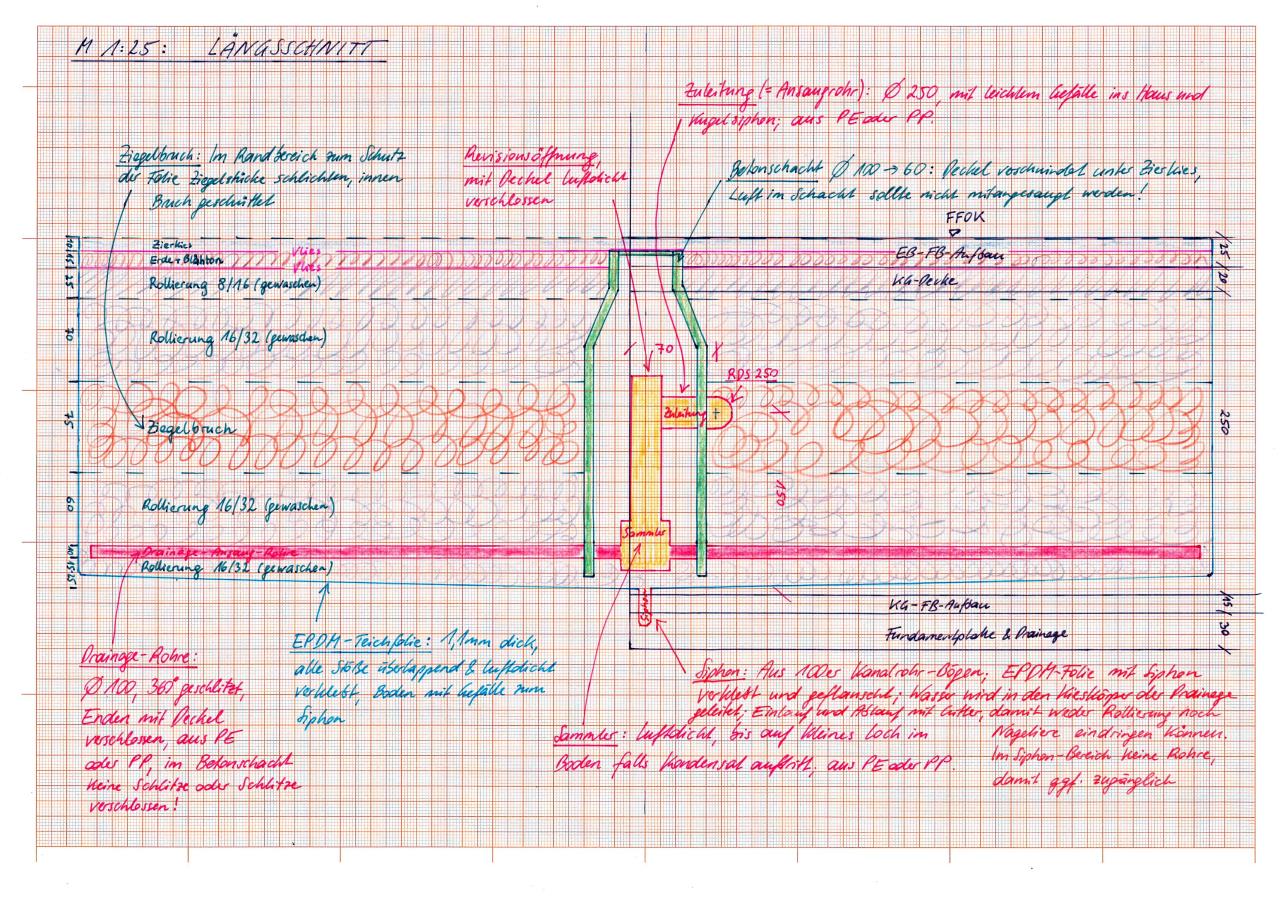 M 1:25: LÄNGSSCHNITT
Zuleitung (= Ansaugrohr): Ø 250, mit leichtem Gefälle ins Haus und
Kugelsiphon; aus PE oder PP.
Ziegelbruch: Im Randbereich zum Schutz
der Folie Ziegelstücke schlichten, innen
Bruch geschüttet
Revisionsöffnung,
mit Deckel luftdicht
verschlossen
Betonschacht Ø 100 → 60: Deckel verschwindet unter Zierkies,
Luft im Schacht sollte nicht mitangesaugt werden!
FFOK
Zierkies
Vlies
Erde + Blähton
Vlies
Rollierung 8/16 (gewaschen)
EG-FB-Aufbau
KG-Decke
25
20
10
15
25
Rollierung 16/32 (gewaschen)
70
70
RDS 250
Zuleitung
75
Ziegelbruch
250
150
60
Rollierung 16/32 (gewaschen)
Sammler
Drainage-Ansaug-Rohre
10
15-25
Rollierung 16/32 (gewaschen)
Siphon
KG-FB-Aufbau
15
Fundamentplatte & Drainage
30
EPDM-Teichfolie: 1,1mm dick,
alle Stöße überlappend & luftdicht
verklebt, Boden mit Gefälle zum
Siphon
Drainage-Rohre:
Ø 100, 360° geschlitzt,
Enden mit Deckel
verschlossen, aus PE
oder PP, im Betonschacht
keine Schlitze oder Schlitze
verschlossen!
Siphon: Aus 100er Kanalrohr-Bögen; EPDM-Folie mit Siphon
verklebt und geflanscht; Wasser wird in den Kieskörper der Drainage
geleitet; Einlauf und Ablauf mit Gitter, damit weder Rollierung noch
Nagetiere eindringen können.
Im Siphon-Bereich keine Rohre,
damit ggf. zugänglich
Sammler: Luftdicht, bis auf kleines Loch im
Boden falls Kondensat auftritt; aus PE oder PP.